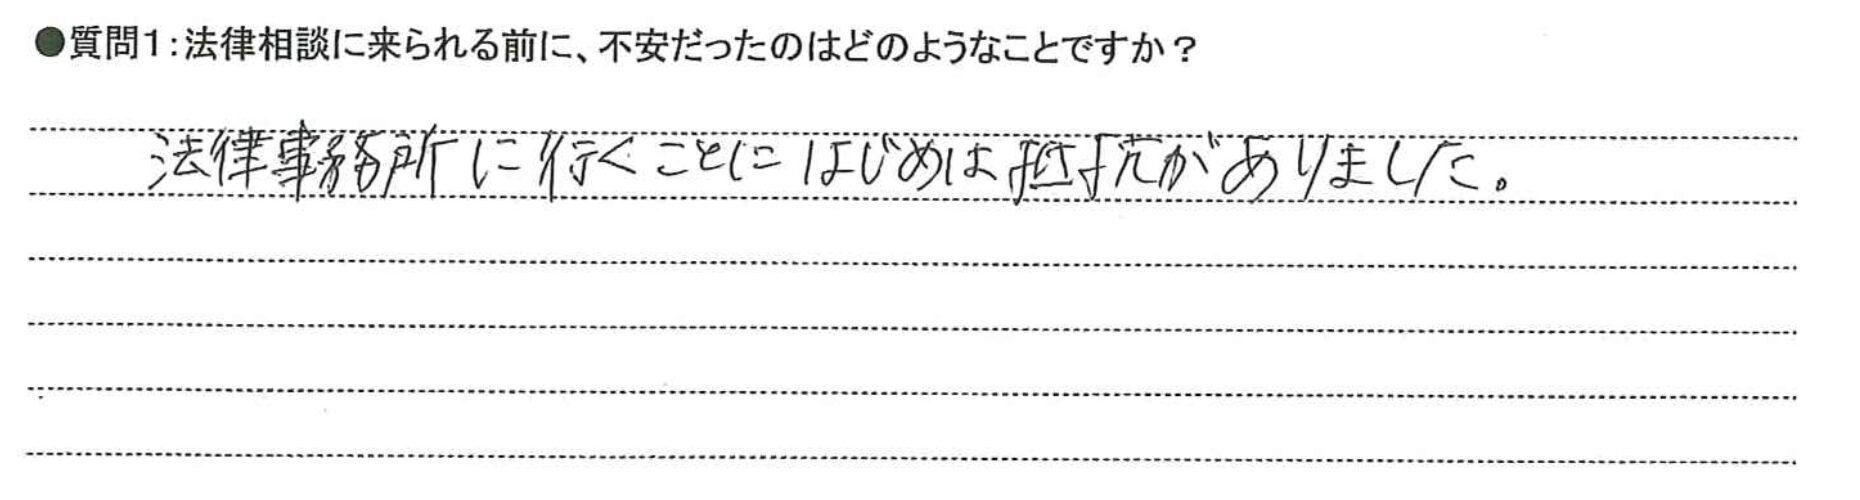 ●質問1:法律相談に来られる前に、不安だったのはどのようなことですか?
法律事務所に行くことにはじめは抵抗がありました。